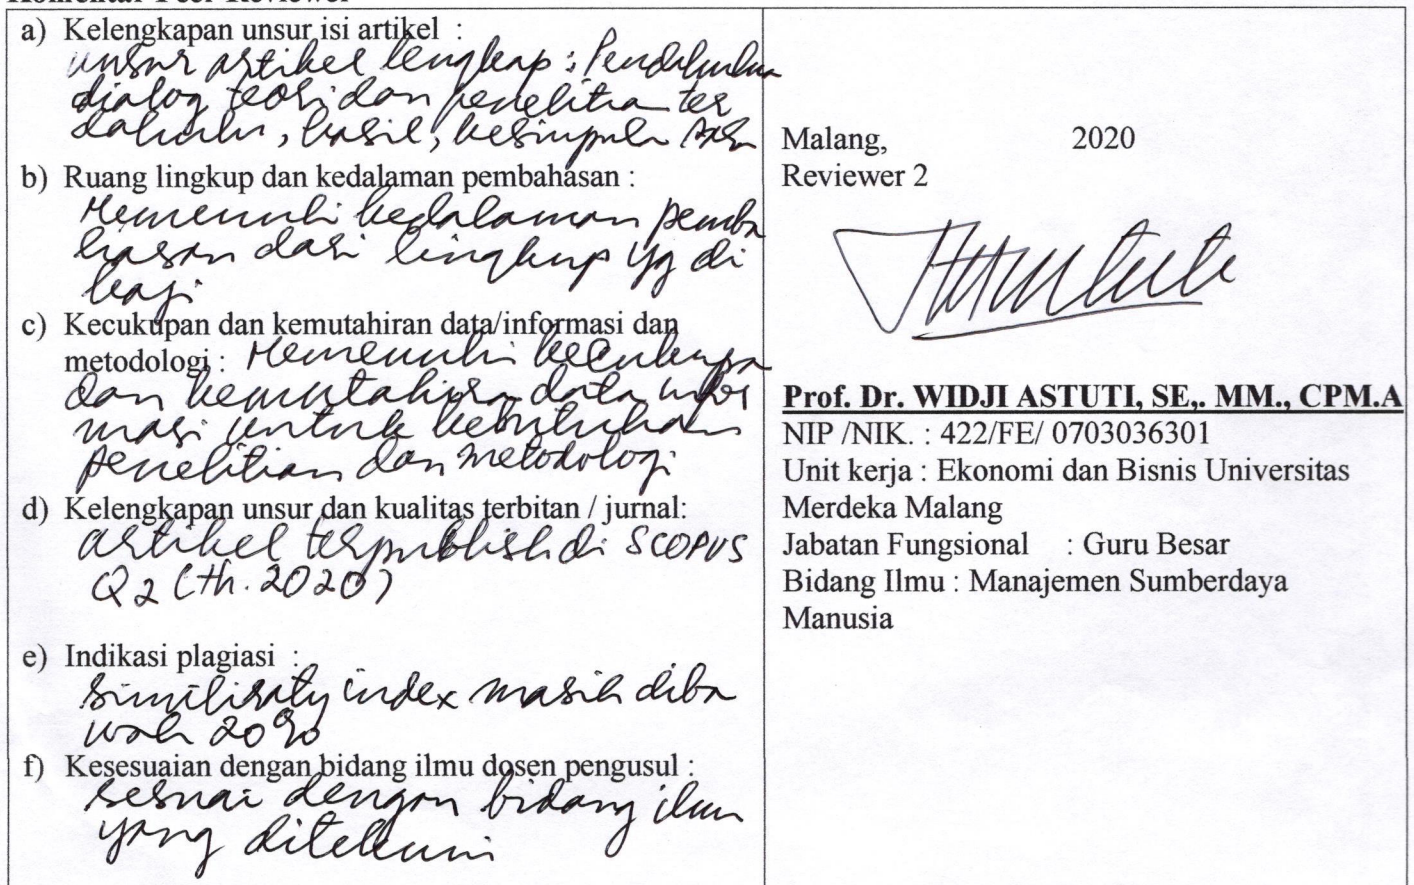 Komentar Peer Reviewer
a) Kelengkapan unsur isi artikel :
unsur artikel lengkap : Pendahulua
dialog teori dan penelitia ter
dahulu, hasil, kesimpula
b) Ruang lingkup dan kedalaman pembahasan :
Memenuhi kedalaman pemba
hasan dari lingkup yg di
kaji
c) Kecukupan dan kemutahiran data/informasi dan
metodologi : Memenuhi kecukupa
dan kemutahira data infor
masi untuk kebutuhan
penelitian dan metodologi
d) Kelengkapan unsur dan kualitas terbitan / jurnal:
artikel terpublish di SCOPUS
Q2 (th. 2020)
e) Indikasi plagiasi :
similiraty index masih diba
wah 20%
f) Kesesuaian dengan bidang ilmu dosen pengusul :
sesuai dengan bidang ilmu
yang ditekuni
Malang, 2020
Reviewer 2
Prof. Dr. WIDJI ASTUTI, SE,. MM., CPM.A
NIP /NIK. : 422/FE/ 0703036301
Unit kerja : Ekonomi dan Bisnis Universitas
Merdeka Malang
Jabatan Fungsional : Guru Besar
Bidang Ilmu : Manajemen Sumberdaya
Manusia